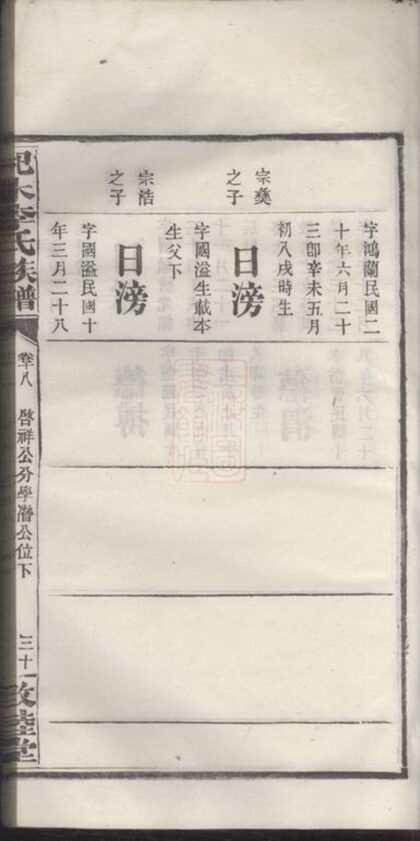 宗彝
之子
字鴻蘭民國二
十年六月二十
三即辛未五月
初八戌時生
日滂
字國溢生載本
生父下
宗浩
之子
日滂
字國溢民國十
年三月二十八
李氏族譜
卷十八
啓祥公分學潛公位下
三十
敦睦堂